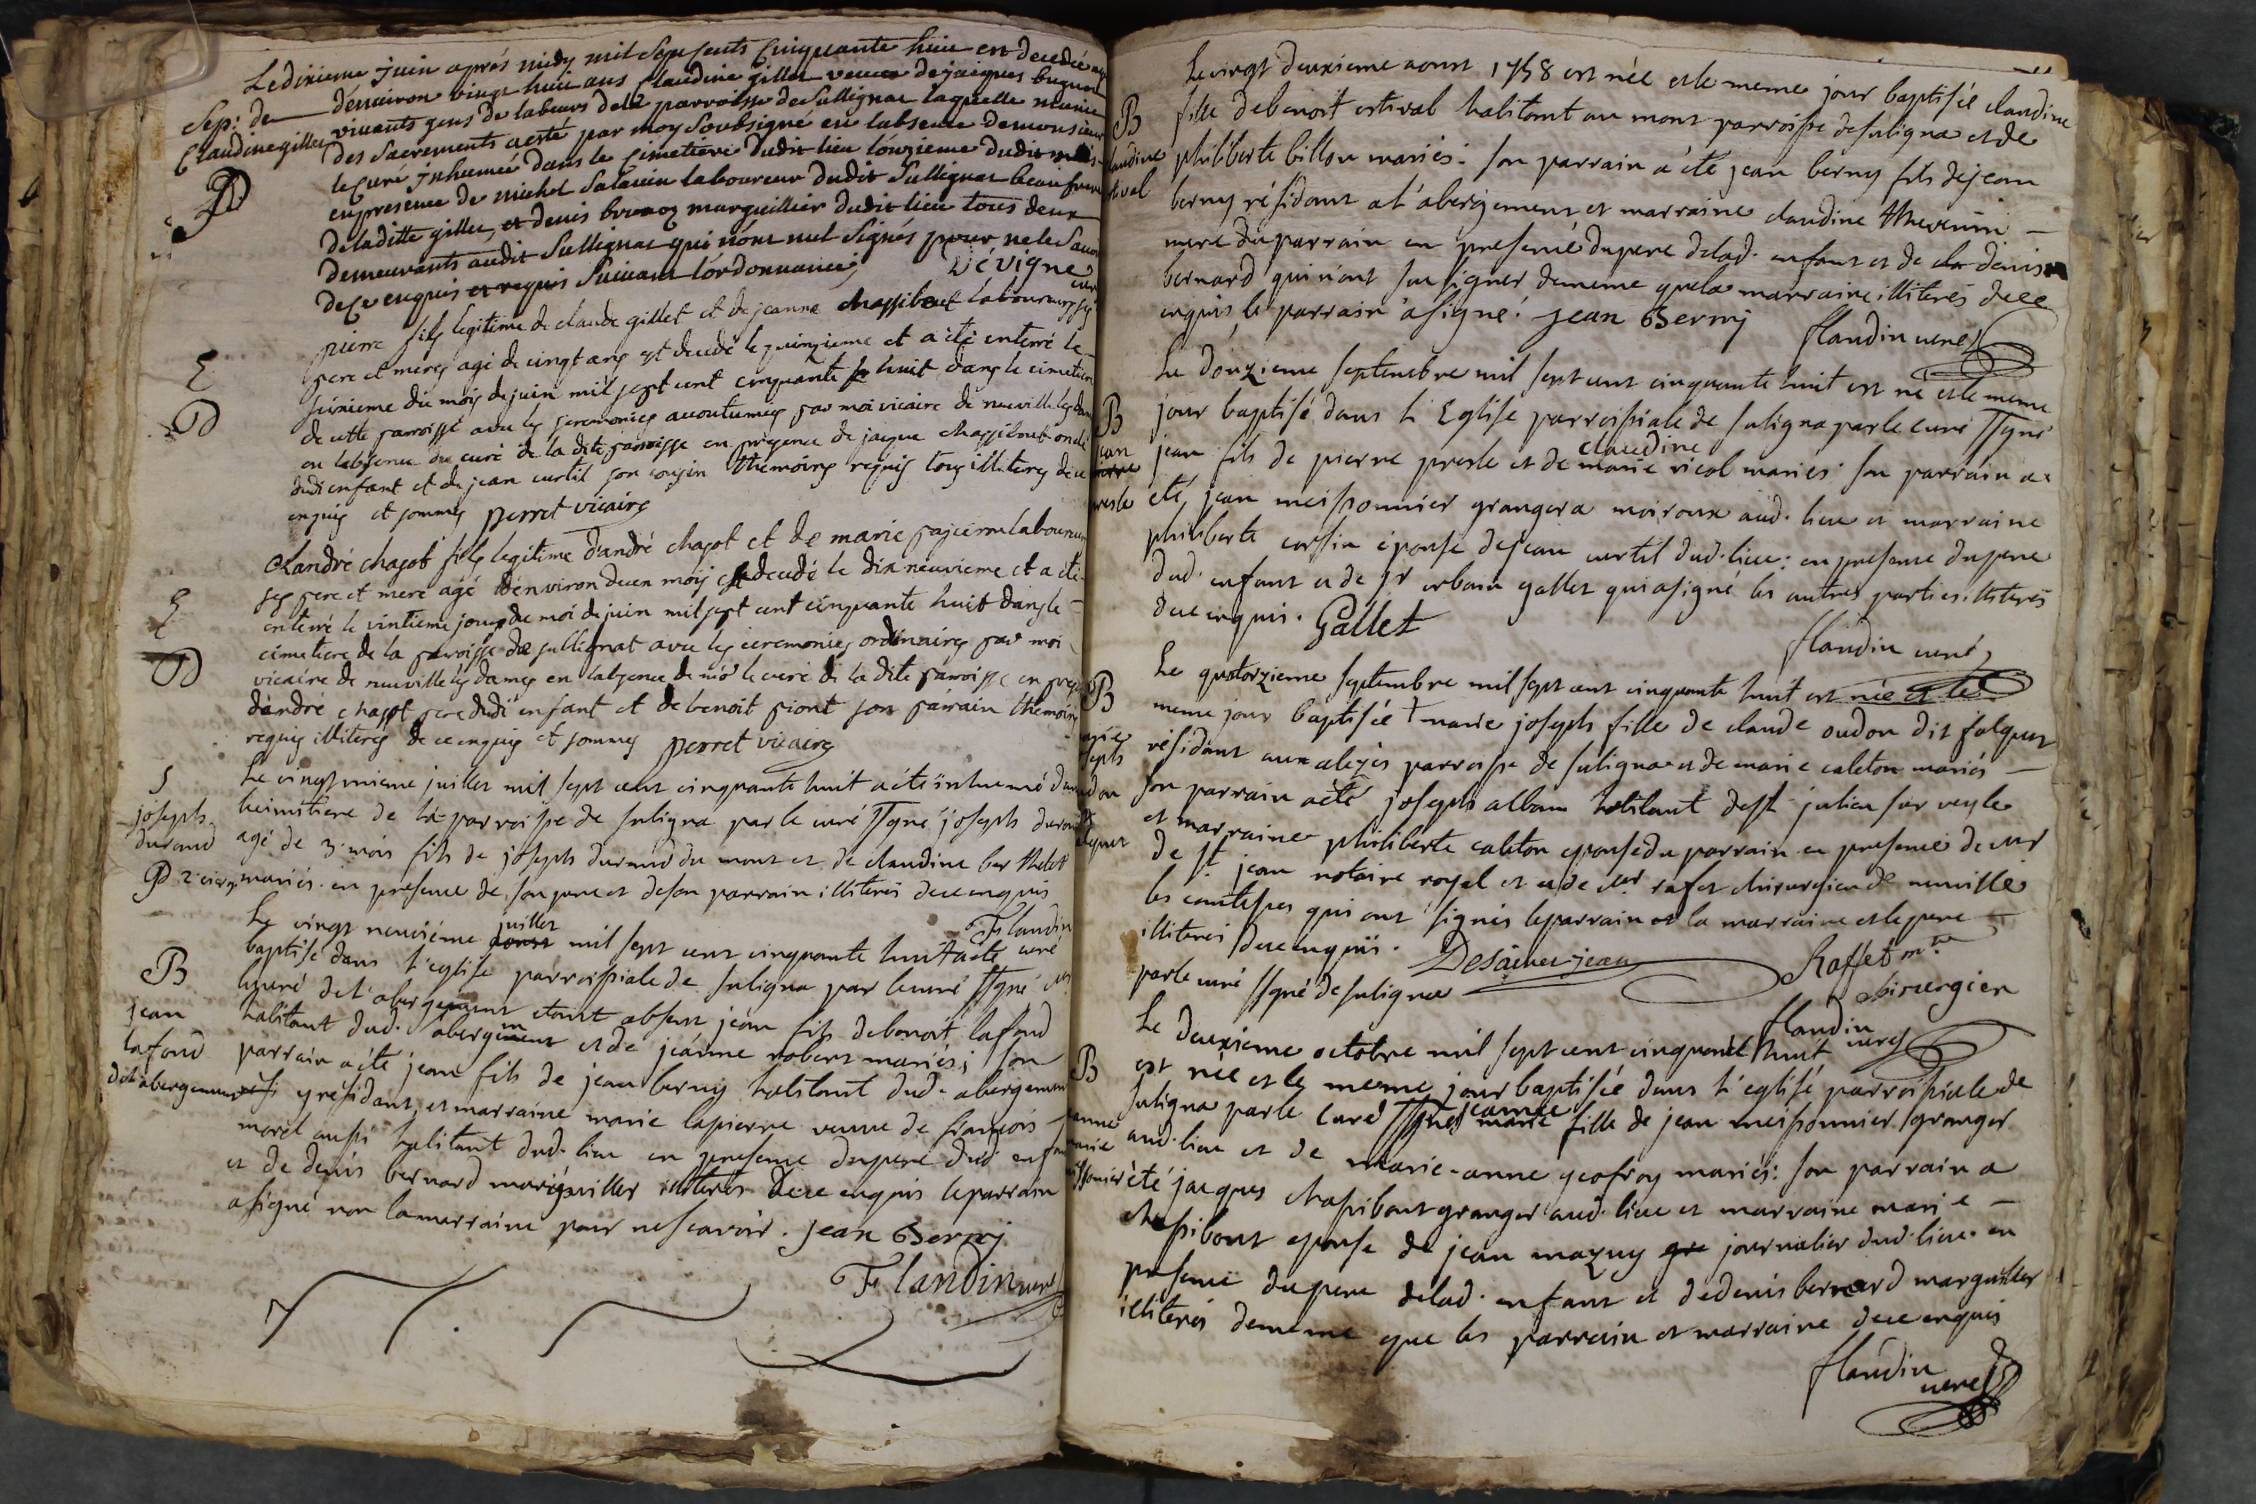 Le dixieme juin après midy mil sept cents cinquante huit est decedée agée
Sep: de
Claudine gillet
denviron vingt huit ans Claudine gillet veuve de jacques
vivants gens de labeurs de la parroisse de Sullignat laquelle munie
des Sacrements a esté par moy Soubsigné en labsence de monsieur
le Curé Inhumée dans le Cimetiere dudit lieu lonzieme dudit mois
en presence de michel Salavin laboureur dudit Sullignat beau frere
de laditte gillet, et denis marguillier dudit lieu tous deux
demeurants audit Sullignat qui nont nul Signés pour ne le Savoir
de ce enquis et requis Suivant lordonnance,
E
D
pierre fils legitime de claude gillet et de jeanne chassibout laboureurs ses
pere et mere agé de vingt ans est decedé le quinzieme et a été enterré le
sixieme du mois de juin mil sept cent cinquante huit dans le cimetiere
de cette paroisse avec les ceremonies accoutumes par moi vicaire de neuville les dames
en labsence du curé de la dite paroisse en presence de jaque chassibout oncle
dudi enfant et de jean curtil son cousin themoins requis tous illiteres de ce
enquis et sommes perret vicaire
E
D
andré chagot fils legitime dandré chagot et de marie laboureurs
ses pere et mere agé denviron deux mois est decedé le dix neuvieme et a été
enterré le vintieme jour du moi de juin mil sept cent cinquante huit dans le
cimetiere de la paroisse de sullignat avec les ceremonies ordinaires par moi
vicaire de neuville les dames en labsence de mr le curé de la dite paroisse en
dandré chagot pere dudi enfant et de benoit piont son parain themoins
requis illiteres de ce enquis et sommes perret vicaire
S
joseph
durand
Le vingt unieme juillet mil sept cent cinquante huit a été inhumé dans
le cimitiere de la parroisse de suligna par le curé ssgné joseph durand
agé de 3 mois fils de joseph durand du mont et de claudine
mariés en presence de son pere et de son parrain illiterés de ce enquis
Flandin
curé
B
jean
lafond
de l'abergement
juillet
Le vingt neuviéme aoust mil sept cent cinquante huit a été
baptisé dans l'eglise parroissiale de suligna par le curé ssgné
le curé de l'abergement etant absent jean fils de benoit lafond
habitant dud. abergement et de jeanne robert mariés; son
parrain a été jean fils de jean berny habitant dud. abergement
y residant, et marraine marie lapierre veuve de francois
morel aussi habitant dud. lieu en presence du pere dud. enfant
et de denis bernard marguiller illiteres de ce enquis le parrain
a signé non la marraine pour ne scavoir. jean Berny
Flandin curé
B
Le vingt deuxieme aoust 1758 est née et le meme jour baptisée claudine
fille de benoit estival habitant au mont parroisse de suligna et de
philiberte billon mariés: son parrain a été jean berny fils de jean
berny résidant a l'abergement et marraine claudine thevenin
mere du parrain en presence du pere de lad. enfant et de denis
bernard qui n'ont su signer de meme que la marraine illiterés de ce
enquis le parrain a signé. jean Berny
flandin curé
B
Le douzieme septembre mil sept cent cinquante huit est né et le meme
jour baptisé dans l'Eglise parroissiale de suligna par le curé ssgné
claudine
jean fils de pierre presle et de marie vicol mariés: son parrain a
eté jean meissonnier granger a moiroux aud. lieu et marraine
philiberte epouse de jean curtil dud. lieu: en presence du pere
dud. enfant et de sr urbain gallet qui a signé les autres parties illiterés
de ce enquis. Gallet
flandin curé
B
Le quatorzieme septembre mil sept cent cinquante huit est née et le
meme jour baptisée + marie joseph fille de claude oudon dit folquet
résidant aux alezés parroisse de suligna et de marie caleton mariés
son parrain a été joseph alban habitant de st julien sur veyle
et marraine philiberte caleton epouse du parrain en presence de mr
de st. jean notaire royal et de mr rafet chirurgien de neuville
les comtesses qui ont signés le parrain et la marraine et le pere
illiterés de ce enquis. Desaint-jean
Raffet mtre
chirurgien
par le curé ssgné de suligna
flandin curé
B
Le deuxieme octobre mil sept cent cinquante huit
est née et le meme jour baptisée dans l'eglise parroissiale de
jeanne
suligna par le curé ssgné marie fille de jean meissonnier granger
aud. lieu et de marie-anne geofroy mariés: son parrain a
été jacques chassibout granger aud. lieu et marraine marie
chassibout epouse de jean mazuy journalier dud. lieu. en
presence du pere de lad. enfant et de denis bernard marguiller
illiterés de meme que les parrain et marraine de ce enquis
flandin
curé